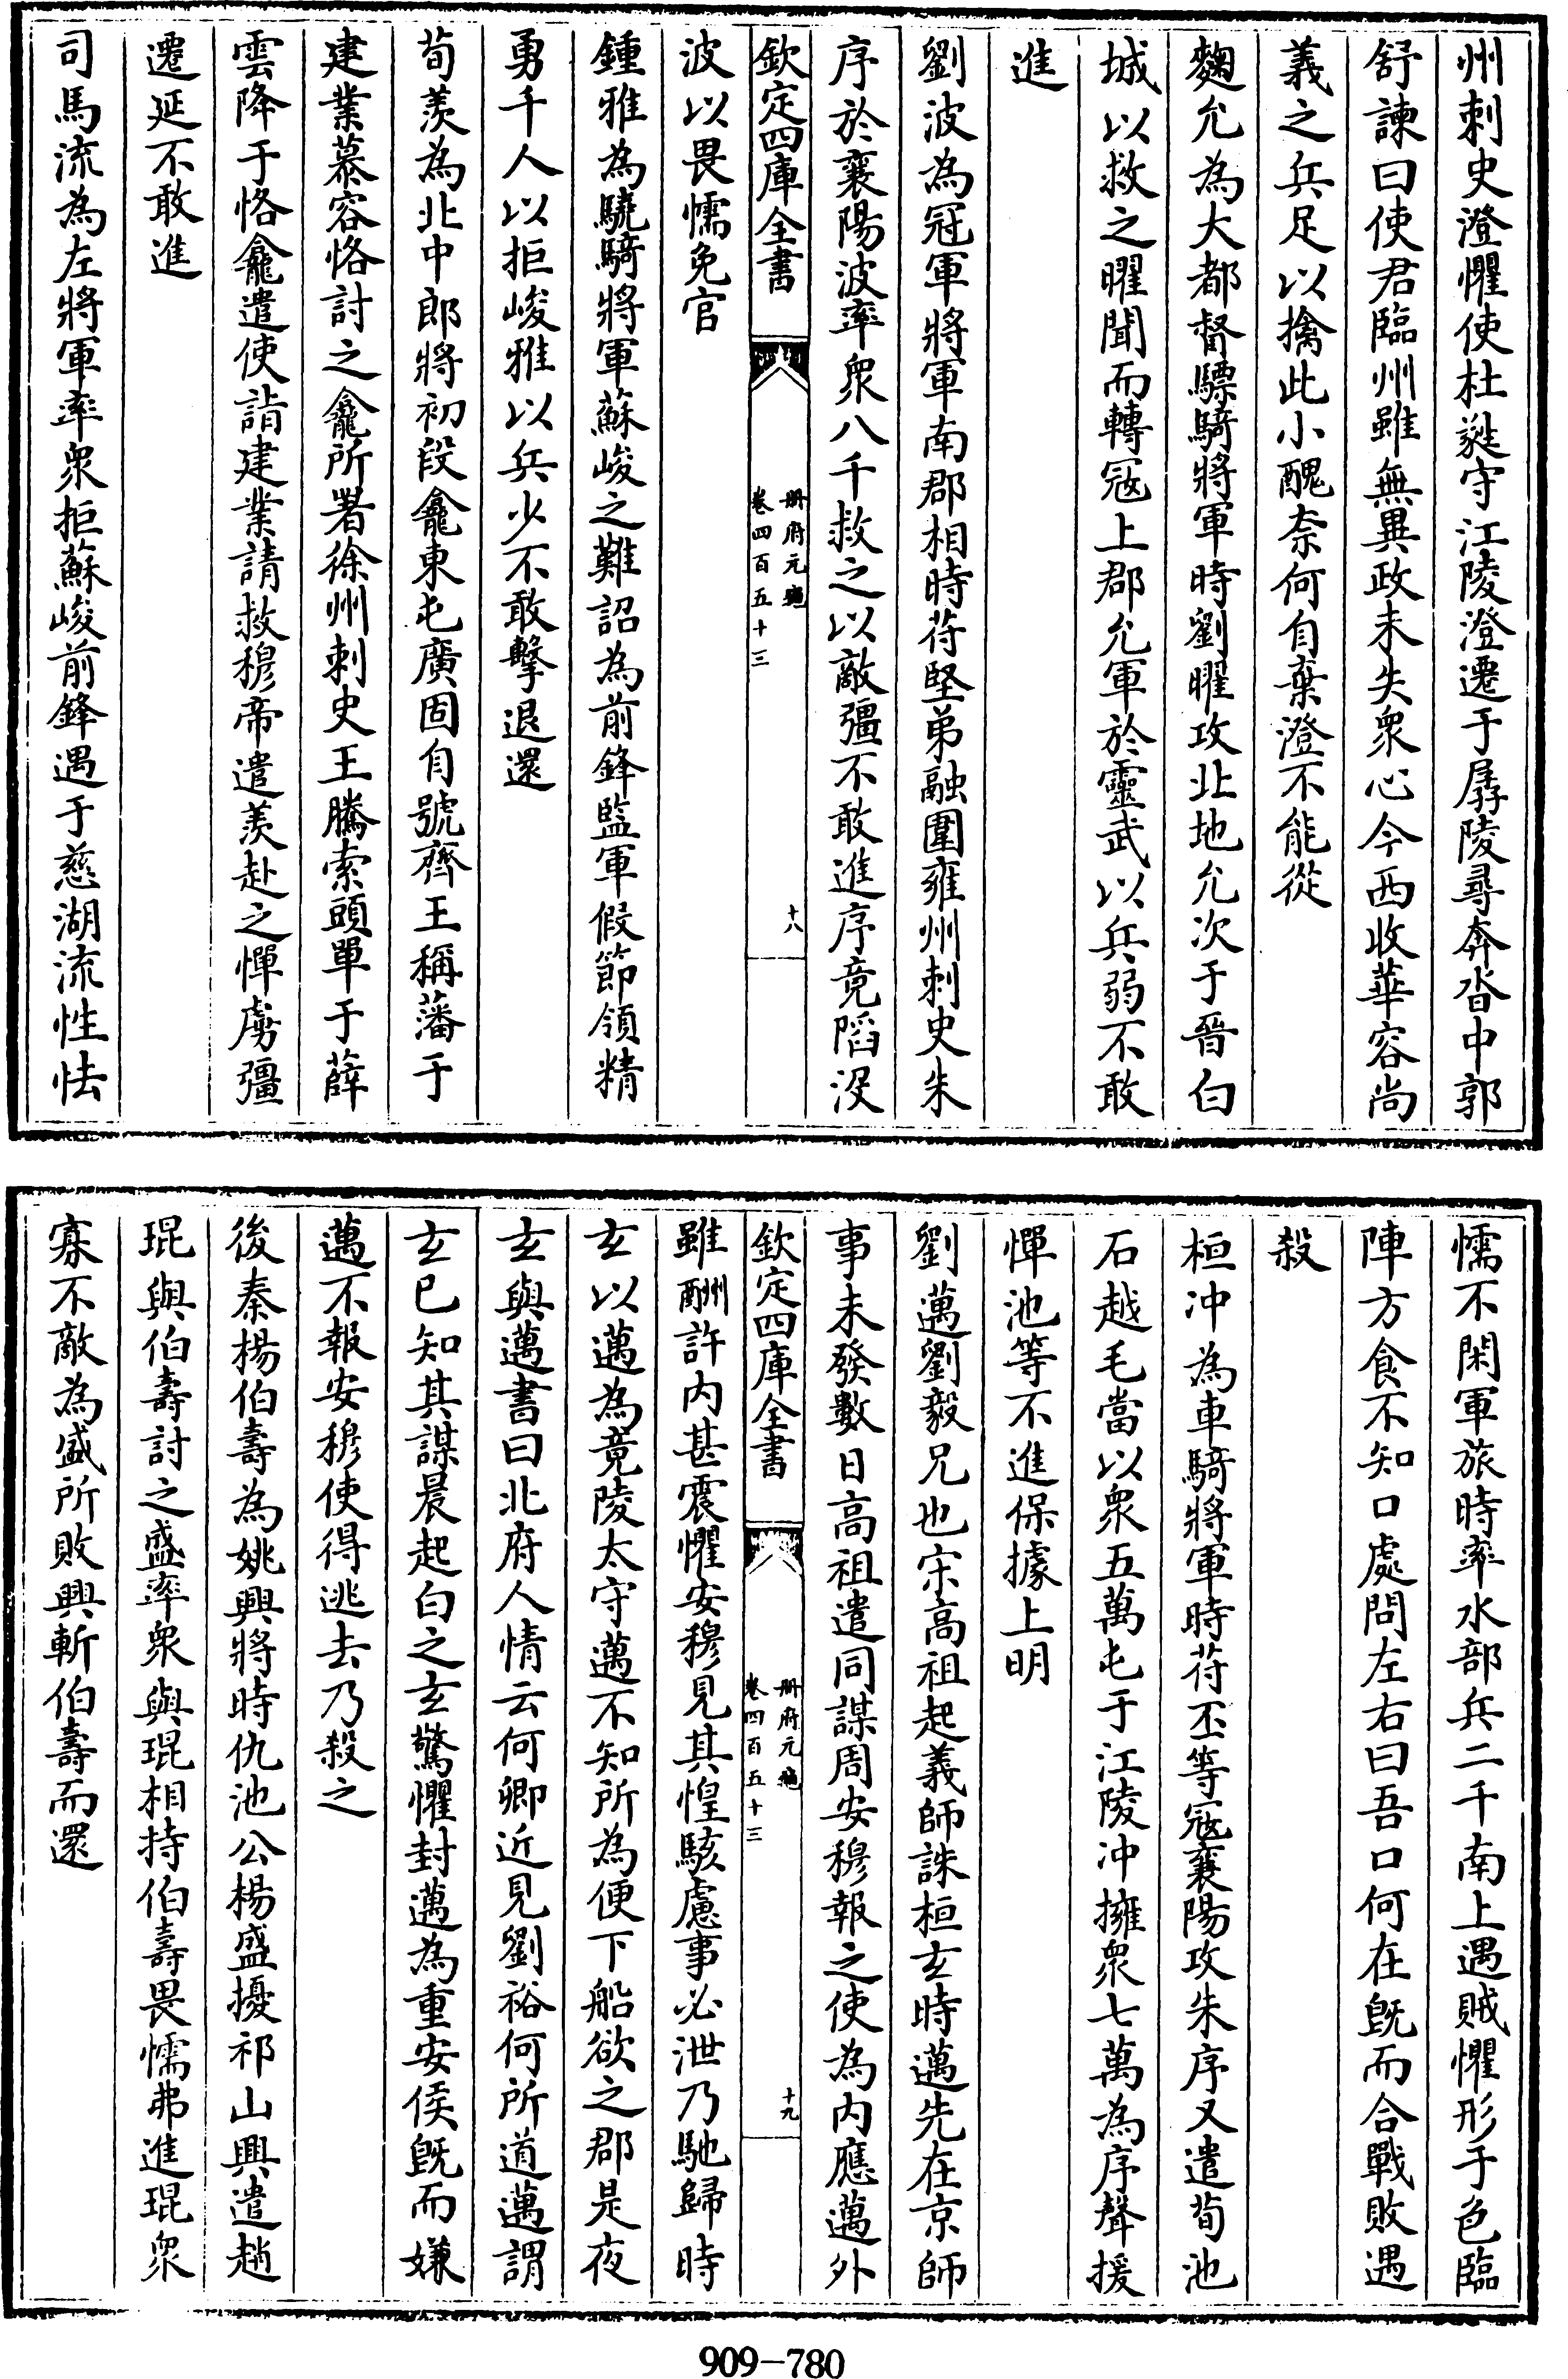 州刺史澄懼使杜蕤守江陵澄遷于孱陵尋奔沓中郭
舒諫曰使君臨州雖無異政未失衆心今西收華容尚
義之兵足以擒此小醜奈何自棄澄不能從
麴允為大都督驃騎將軍時劉曜攻北地允次于晉白
城以救之曜聞而轉寇上郡允軍於靈武以兵弱不敢
進
劉波為冠軍將軍南郡相時苻堅弟融圍雍州刺史朱
序於襄陽波率衆八千救之以敵彊不敢進序竟陷没
欽定四庫全書
册府元龜
卷四百五十三
十八
波以畏懦免官
鍾雅為驍騎將軍蘇峻之難詔為前鋒監軍假節領精
勇千人以拒峻雅以兵少不敢擊退還
荀羨為北中郎將初段龕東屯廣固自號齊王稱藩于
建業慕容恪討之龕所署徐州刺史王騰索頭單于薛
雲降于恪龕遣使詣建業請救穆帝遣羨赴之憚虜彊
遷延不敢進
司馬流為左將軍率衆拒蘇峻前鋒遇于慈湖流性怯
懦不閑軍旅時率水部兵二千南上遇賊懼形于色臨
陣方食不知口處問左右曰吾口何在既而合戰敗遇
殺
桓冲為車騎將軍時苻丕等寇襄陽攻朱序又遣荀池
石越毛當以衆五萬屯于江陵冲擁衆七萬為序聲援
憚池等不進保據上明
劉邁劉毅兄也宋高祖起義師誅桓玄時邁先在京師
事未發數日高祖遣同謀周安穆報之使為内應邁外
欽定四庫全書
册府元龜
卷四百五十三
十九
雖酬許内甚震懼安穆見其惶駭慮事必泄乃馳歸時
玄以邁為竟陵太守邁不知所為便下船欲之郡是夜
玄與邁書曰北府人情云何卿近見劉裕何所道邁謂
玄已知其謀晨起白之玄驚懼封邁為重安侯既而嫌
邁不報安穆使得逃去乃殺之
後秦楊伯壽為姚興將時仇池公楊盛擾祁山興遣趙
琨與伯壽討之盛率衆與琨相持伯壽畏懦弗進琨衆
寡不敵為盛所敗興斬伯壽而還
909-780